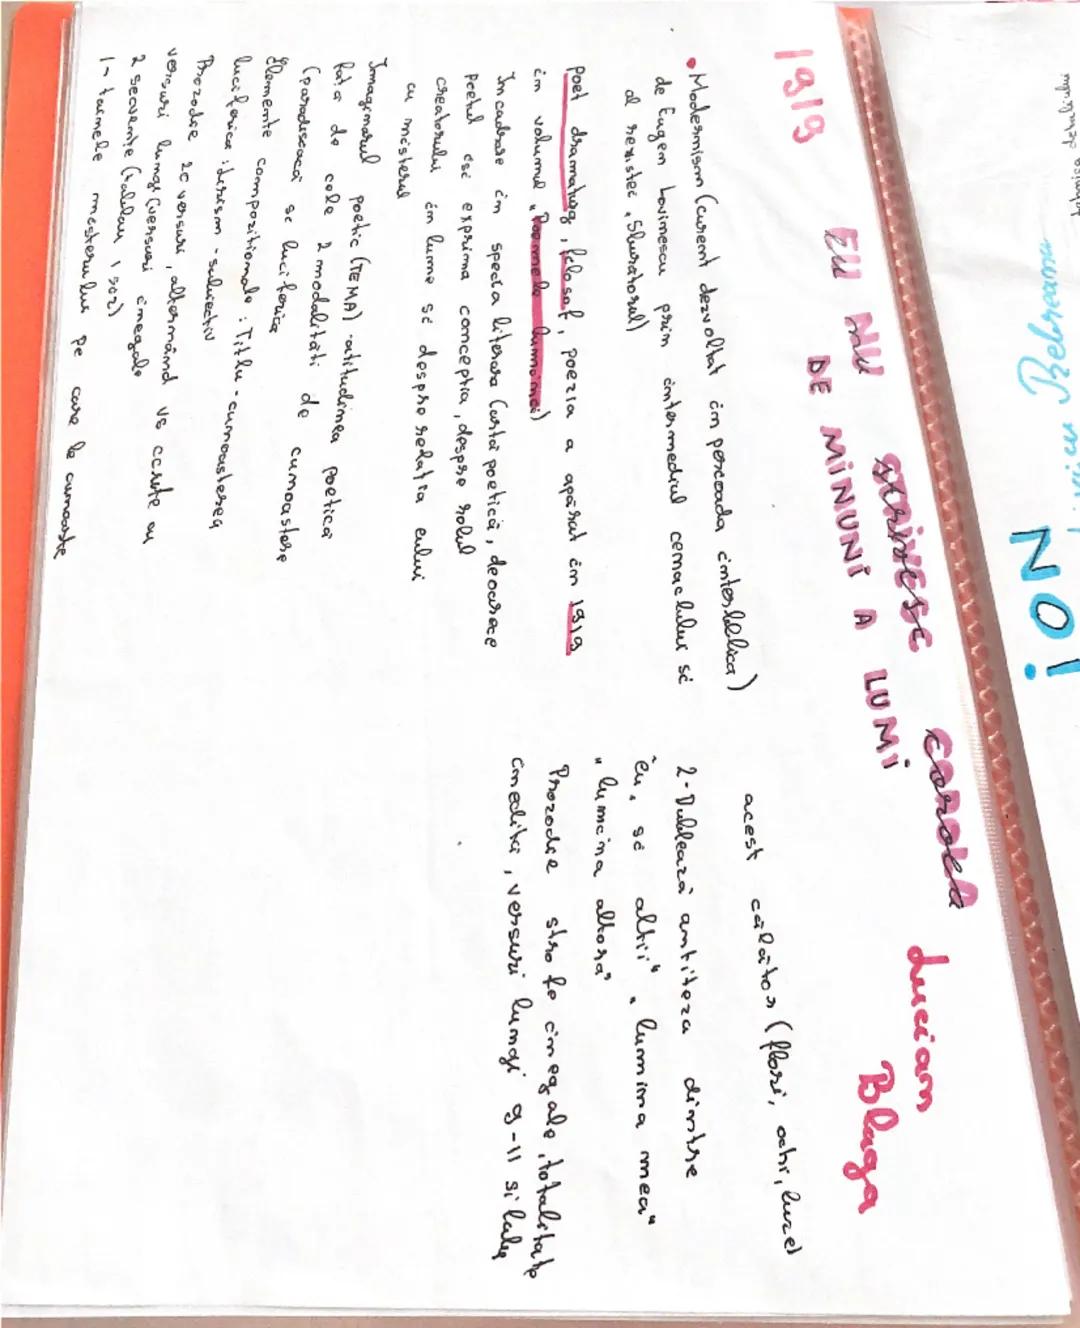 ION
Liviu Rebreanu
EU NU STRIVESC COROLA
DE MINUNI A LUMI
Lucian
Blaga
1919
• Modernism (curent dezvoltat în perioada interbelica)
de Eugen Lovinescu prin intermediul cenaclului si
al revistei „Sburatorul)
Poet dramaturg, filosof, poezia a apărut în 1919
in volumul „Poemele luminii)
Incadrare în specia literara (artă poetică, deoarece
poetul isi exprima conceptia, despre rolul
creatorului in lume si despre relatia eului
cu misterul
Imaginarul poetic (TEMA) - atitudinea poetică
fata de cele 2 modalităti de cunoastere
(paradisiacă si luciferica
Elemente compozitionale: Titlu - cunoasterea
luciferica: lirism - subiectiv
Prozodie 20 versuri, alternând vs scurte cu
versuri lungi (versuri inegale
2 secvente (tablou 1 si 2)
1- tainele misterului pe care le cunoaste
acest călător (flori, ochi, buze)
2- Dublează antiteza dintre
eu, si altii", lumina mea"
„lumina altora"
Prozodie strofe inegale, totalitate
inedita, versuri lungi 9-11 silabe